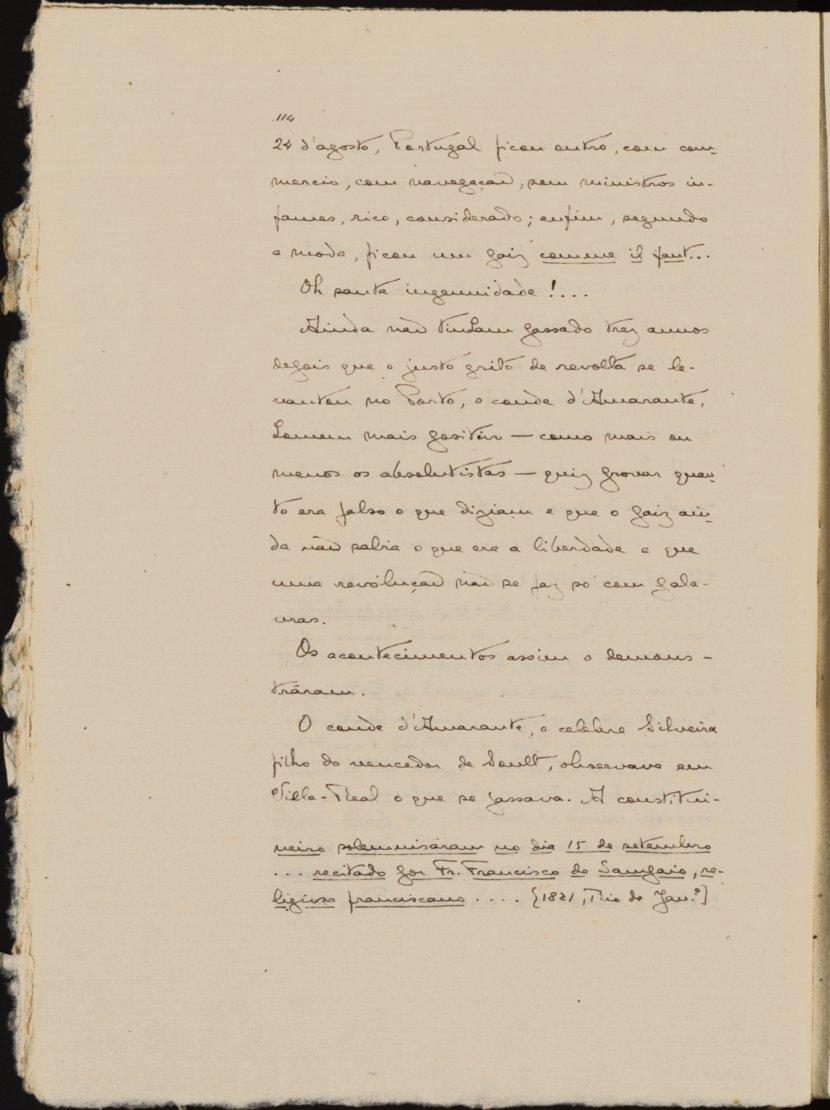 114
24 d'agosto, Portugal ficou outro, com com-
mercio, com navegação, sem ministros in-
fames, rico, considerado; enfim, segundo
a moda, ficou um paiz comme il faut...
Oh santa ingenuidade!...
Ainda não tinham passado trez annos
depois que o justo grito de revolta se le-
vantou no Porto, o conde d'Amarante,
homem mais positivo — como mais ou
menos os absolutistas — quiz provar quan-
to era falso o que diziam e que o paiz ain-
da não sabia o que era a liberdade e que
uma revolução não se faz só com pala-
vras.
Os acontecimentos assim o demons-
tráram.
O conde d'Amarante, o celebre Silveira
filho do vencedor de Soult, observava em
Villa-Real o que se passava. A constitui-
neiro solemnisáram no dia 15 de setembro
... recitado por Fr. Francisco de Sampaio, re-
ligioso franciscano .... [1821, Rio de Jan.º]